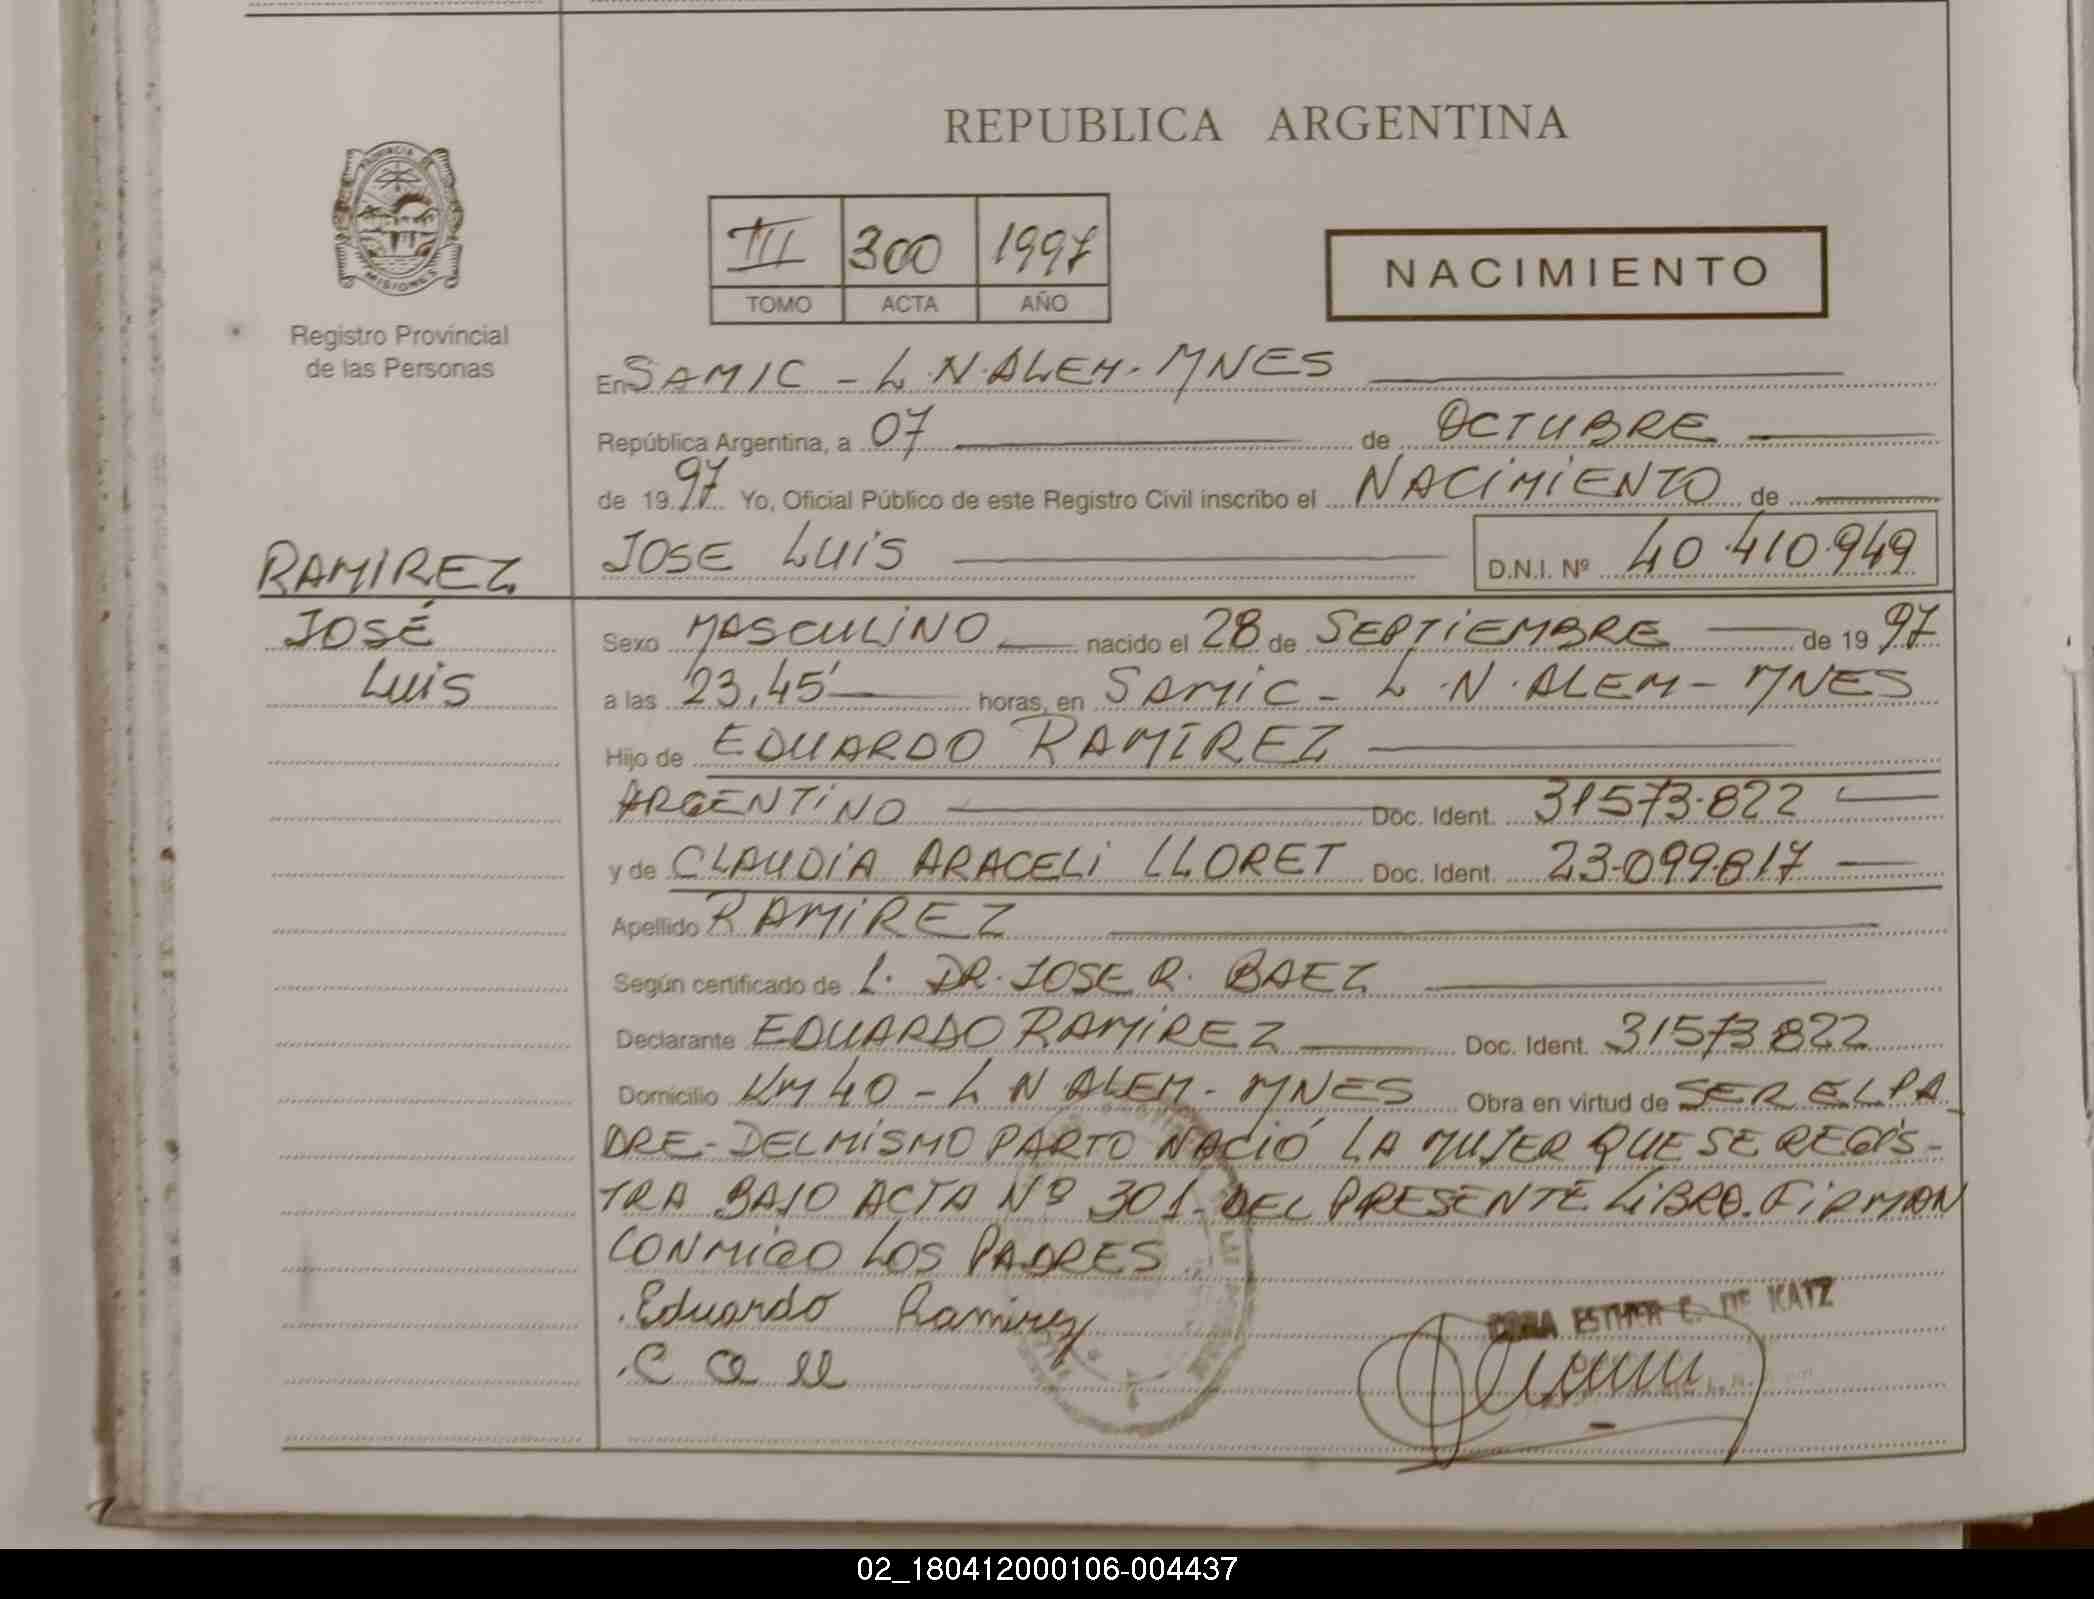 REPUBLICA ARGENTINA
PROVINCIA DE
MISIONES
Registro Provincial
de las Personas
III 300 1997
TOMO ACTA AÑO
NACIMIENTO
En SAMIC - L.N.ALEM - MNES
República Argentina, a 07 de OCTUBRE
de 1997 Yo, Oficial Público de este Registro Civil inscribo el NACIMIENTO de
JOSE LUIS D.N.I. Nº 40.410.949
RAMIREZ
JOSÉ
LUIS
Sexo MASCULINO nacido el 28 de SEPTIEMBRE de 1997
a las 23,45 horas, en SAMIC - L.N.ALEM - MNES
Hijo de EDUARDO RAMIREZ
ARGENTINO Doc. Ident. 31573.822
y de CLAUDIA ARACELI LLORET Doc. Ident. 23.099.817
Apellido RAMIREZ
Según certificado de L. DR. JOSE R. BAEZ
Declarante EDUARDO RAMIREZ Doc. Ident. 31573822
Domicilio KM 40 - L N ALEM - MNES Obra en virtud de SER EL PA
DRE - DEL MISMO PARTO NACIÓ LA MUJER QUE SE REGIS-
TRA BAJO ACTA Nº 301 - DEL PRESENTE LIBRO. FIRMAN
CONMIGO LOS PADRES
Eduardo Ramirez
ESTHER C. DE KATZ
02_180412000106-004437